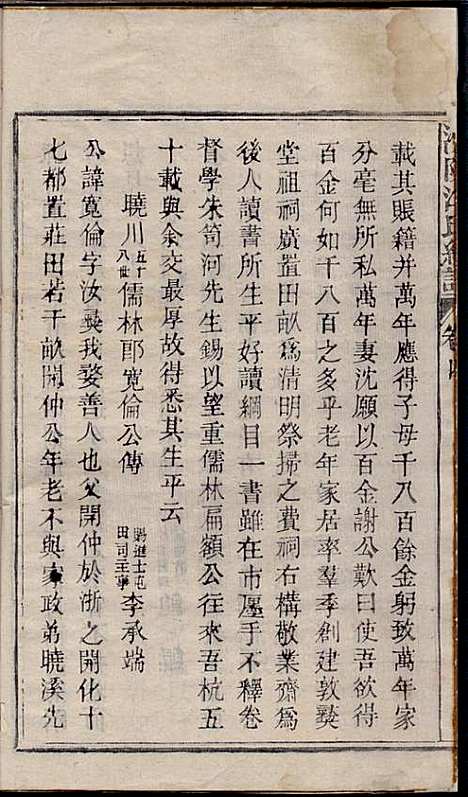 載其賬籍并萬年應得子母千八百餘金躬致萬年家
分毫無所私萬年妻沈願以百金謝公歎曰使吾欲得
百金何如千八百之多乎老年家居率羣季創建敦彝
堂祖祠廣置田畝爲清明祭掃之費祠右構敬業齋爲
後人讀書所生平好讀綱目一書雖在市廛手不釋卷
督學朱笥河先生錫以望重儒林扁額公往來吾杭五
十載與余交最厚故得悉其生平云
曉川五十八世儒林郎寬倫公傳
賜進士屯田司主事李承端
公諱寬倫字汝彝我婺善人也父開仲於浙之開化十
七都置莊田若干畝開仲公年老不與家政弟曉溪先